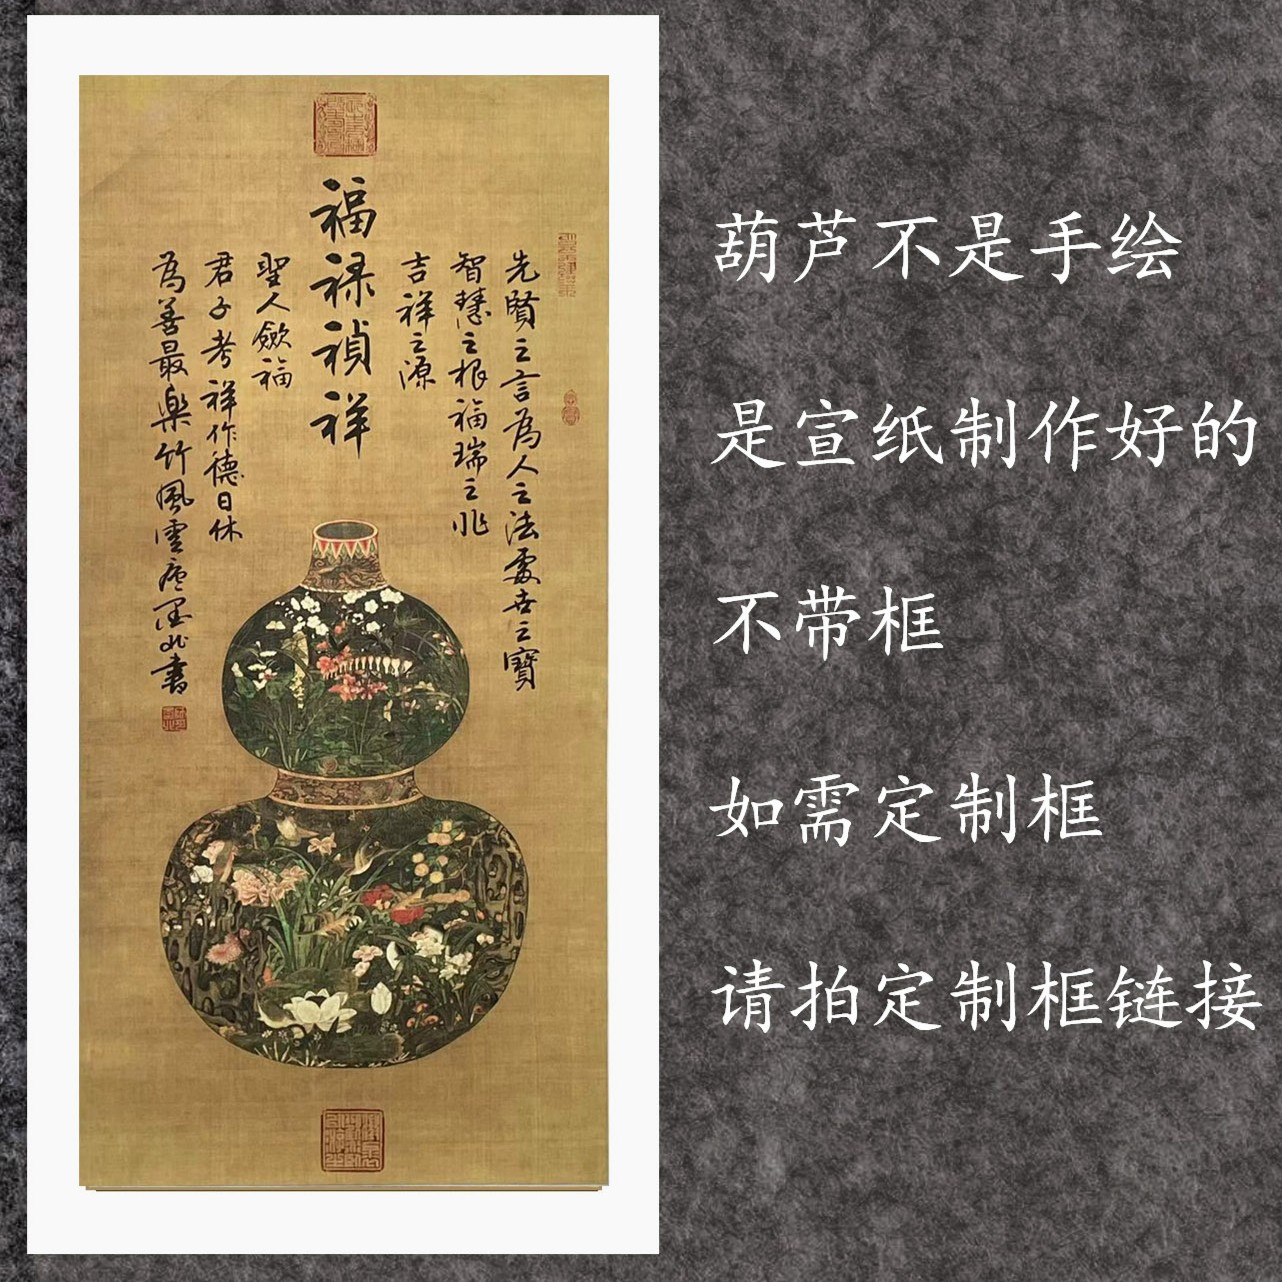 福禄祯祥
先賢之言為人之法處世之寶
智慧之根福瑞之兆
吉祥之源
聖人歛福
君子考祥作德日休
為善最樂竹風雲庐墨兆書
葫芦不是手绘
是宣纸制作好的
不带框
如需定制框
请拍定制框链接